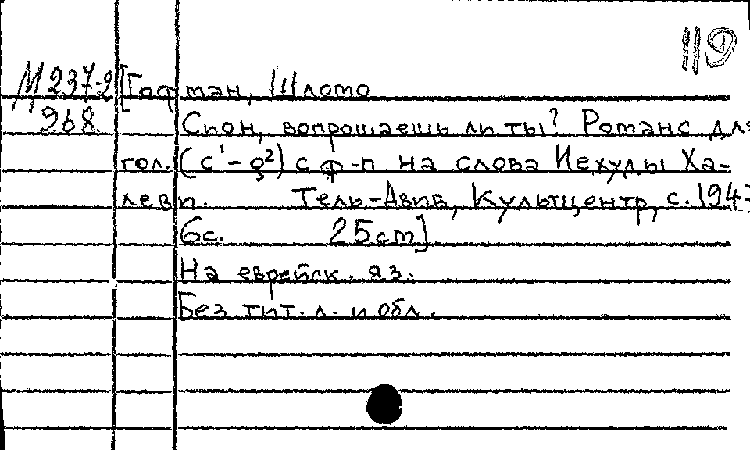 119
М 237-2 [Гофман, Шломо
968 Сион, вопрошаешь ли ты? Романс для
гол. (c¹-g²) с ф-п на слова Иехуды Ха-
леви. Тель-Авив, Культцентр, с. 1947
6с. 25см]
На еврейск. яз.
Без тит. л. и обл.